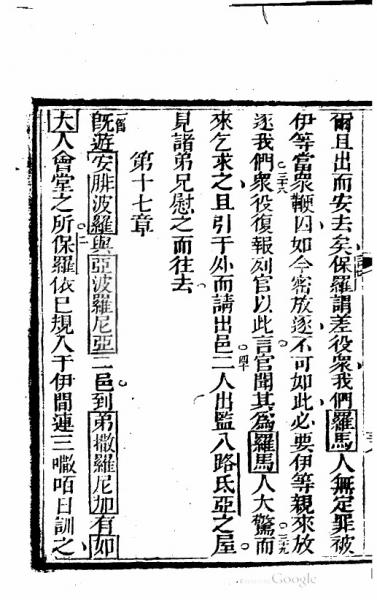 爾且出而安去矣保羅謂差役衆我們羅馬人無定罪被
伊等當衆鞭囚如今密放逐不可如此必要伊等親來放
三八
逐我們衆役復報列官以此言官聞其為羅馬人大驚而
三九
來乞求之且引于外而請出邑二人出監入路氐亞之屋
四十
見諸弟兄慰之而往去
第十七章
既遊安腓波羅與亞波羅尼亞二邑到弟撒羅尼加有如
大人會堂之所保羅依已規入于伊間連三㗭咟日訓之
二
Google